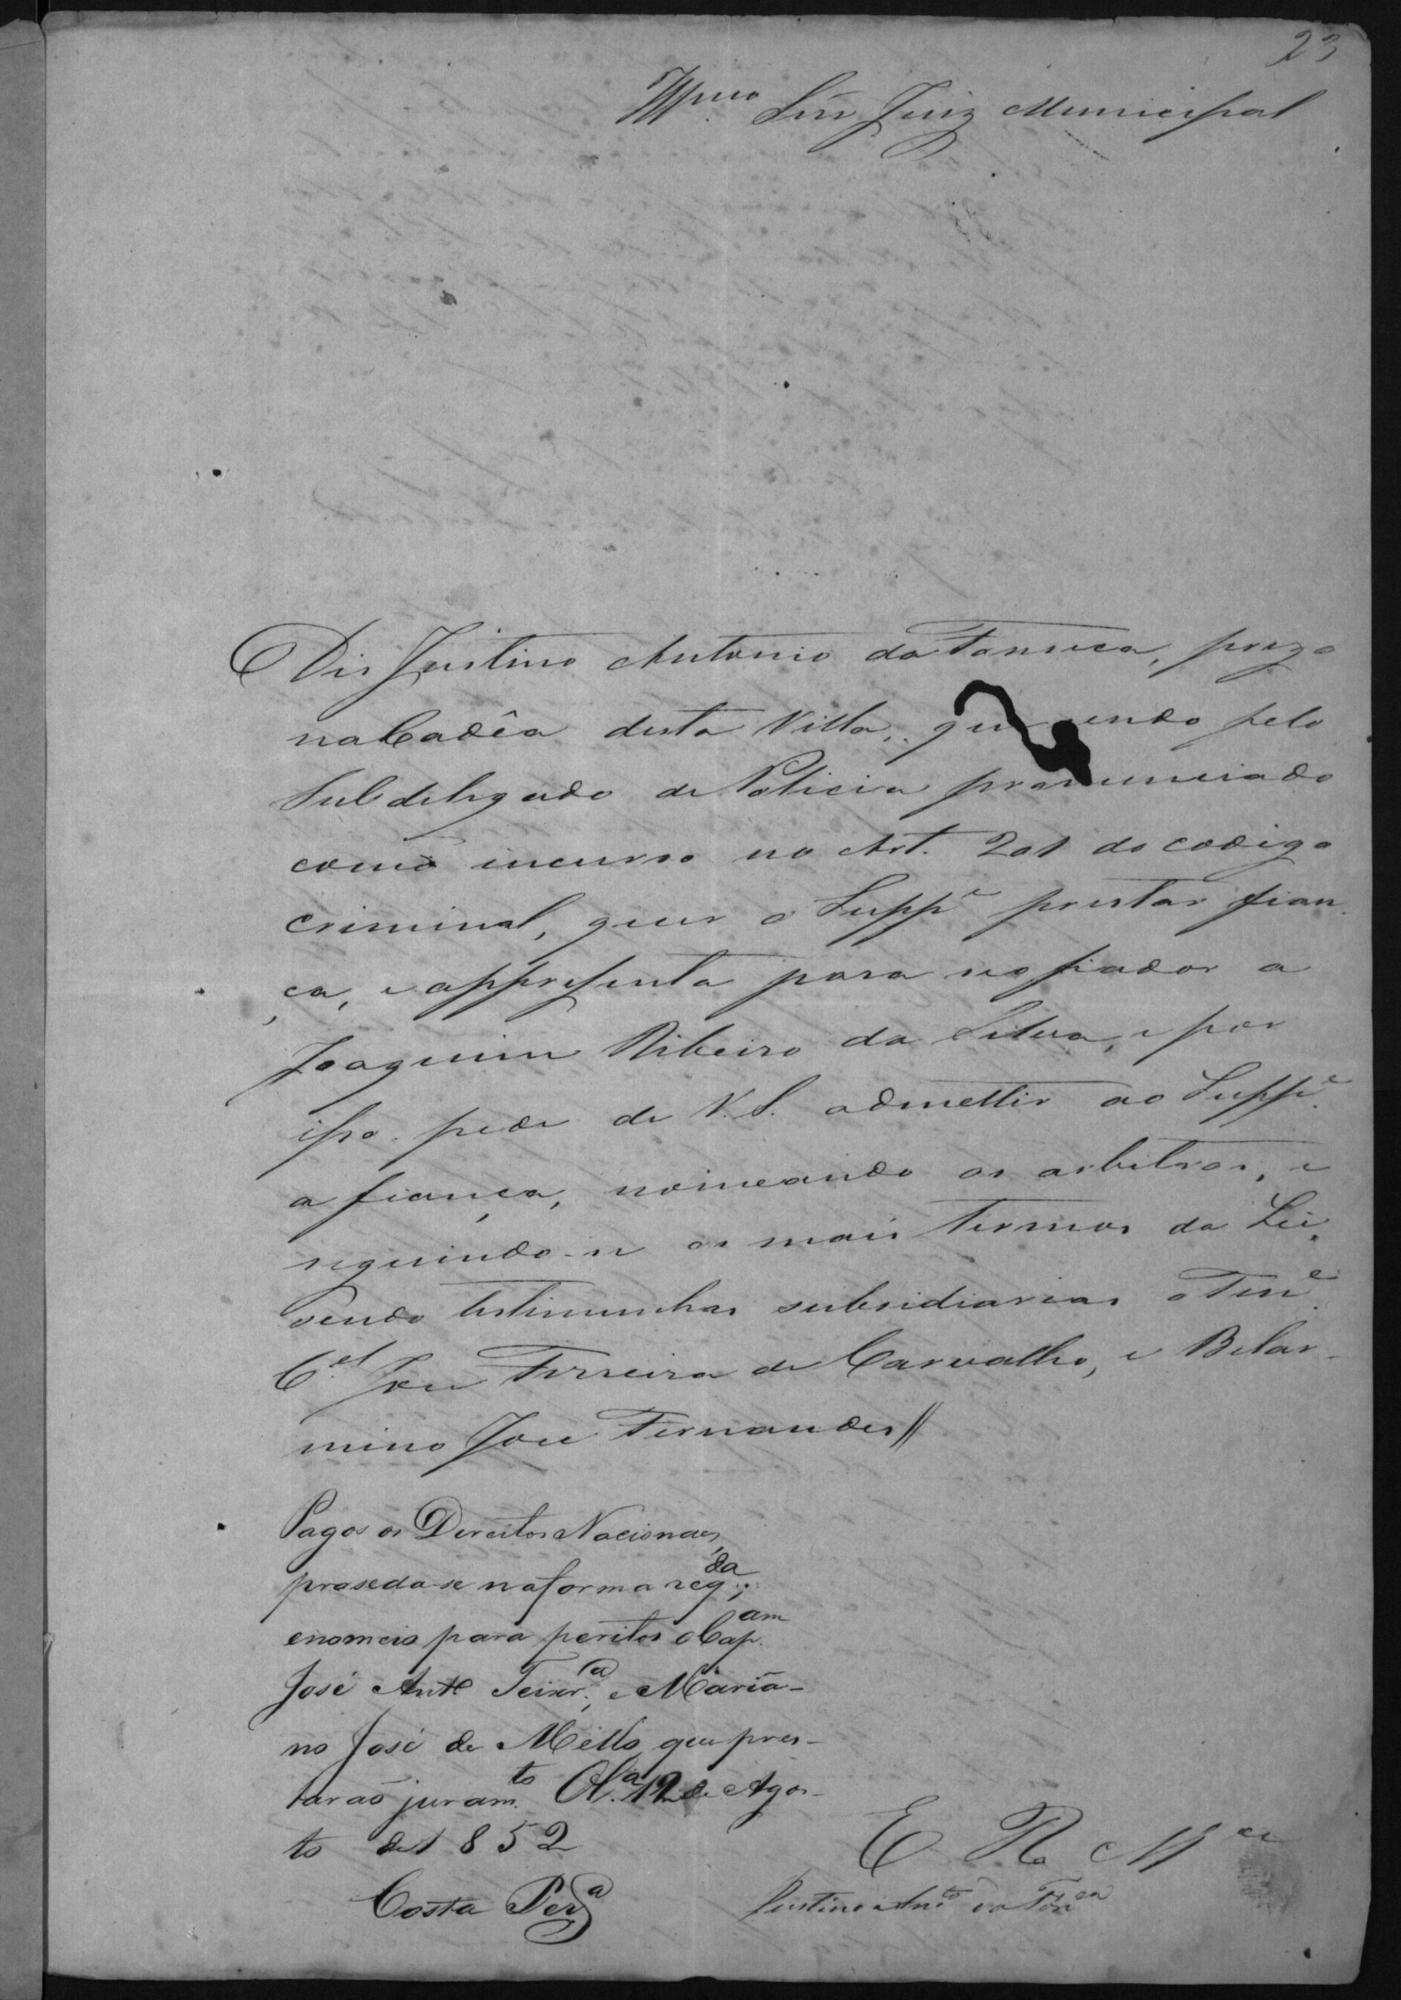 23
Illmo. Snr. Juiz Municipal
Dis Justino Antonio da Fonseca, prezo
na Cadêa desta Villa, que endo pelo
Subdelegado de Policia pronunciado
como incurso no Art. 201 do codigo
criminal, quer o Suppe prestar fian-
ça, e appresenta para seo fiador a
Joaquim Ribeiro da Silva, e por
isso pede de V.S. admettir ao Suppe.
a fiança, nomeando os arbitros, e
seguindo-se os mais termos da Lei,
sendo testimunhas subsidiarias o Tene.
Cel. Jose Ferreira de Carvalho, e Belar-
mino Jose Fernandes//
Pagos os Direitos Nacionaes,
proseda-se na forma reqda.;
e nomeio para peritos o Capam.
José Anto Teixra., e Maria-
no José de Mello que pres-
tarão juramto. Ola. 12 de Agos-
to de 1852
Costa Pera
E R Mce
Justino Anto da Fonca